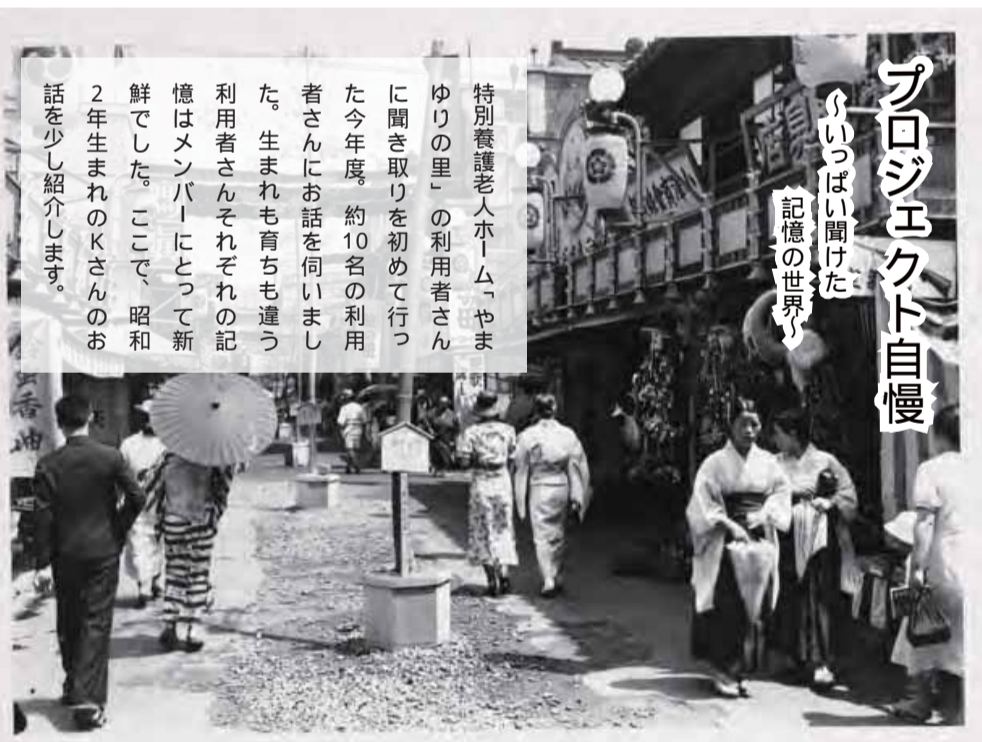 プロジェクト自慢
～いっぱい聞けた
記憶の世界～
特別養護老人ホーム「やま
ゆりの里」の利用者さん
に聞き取りを初めて行っ
た今年度。約10名の利用
者さんにお話を伺いまし
た。生まれも育ちも違う
利用者さんそれぞれの記
憶はメンバーにとって新
鮮でした。ここで、昭和
2年生まれのKさんのお
話を少し紹介します。